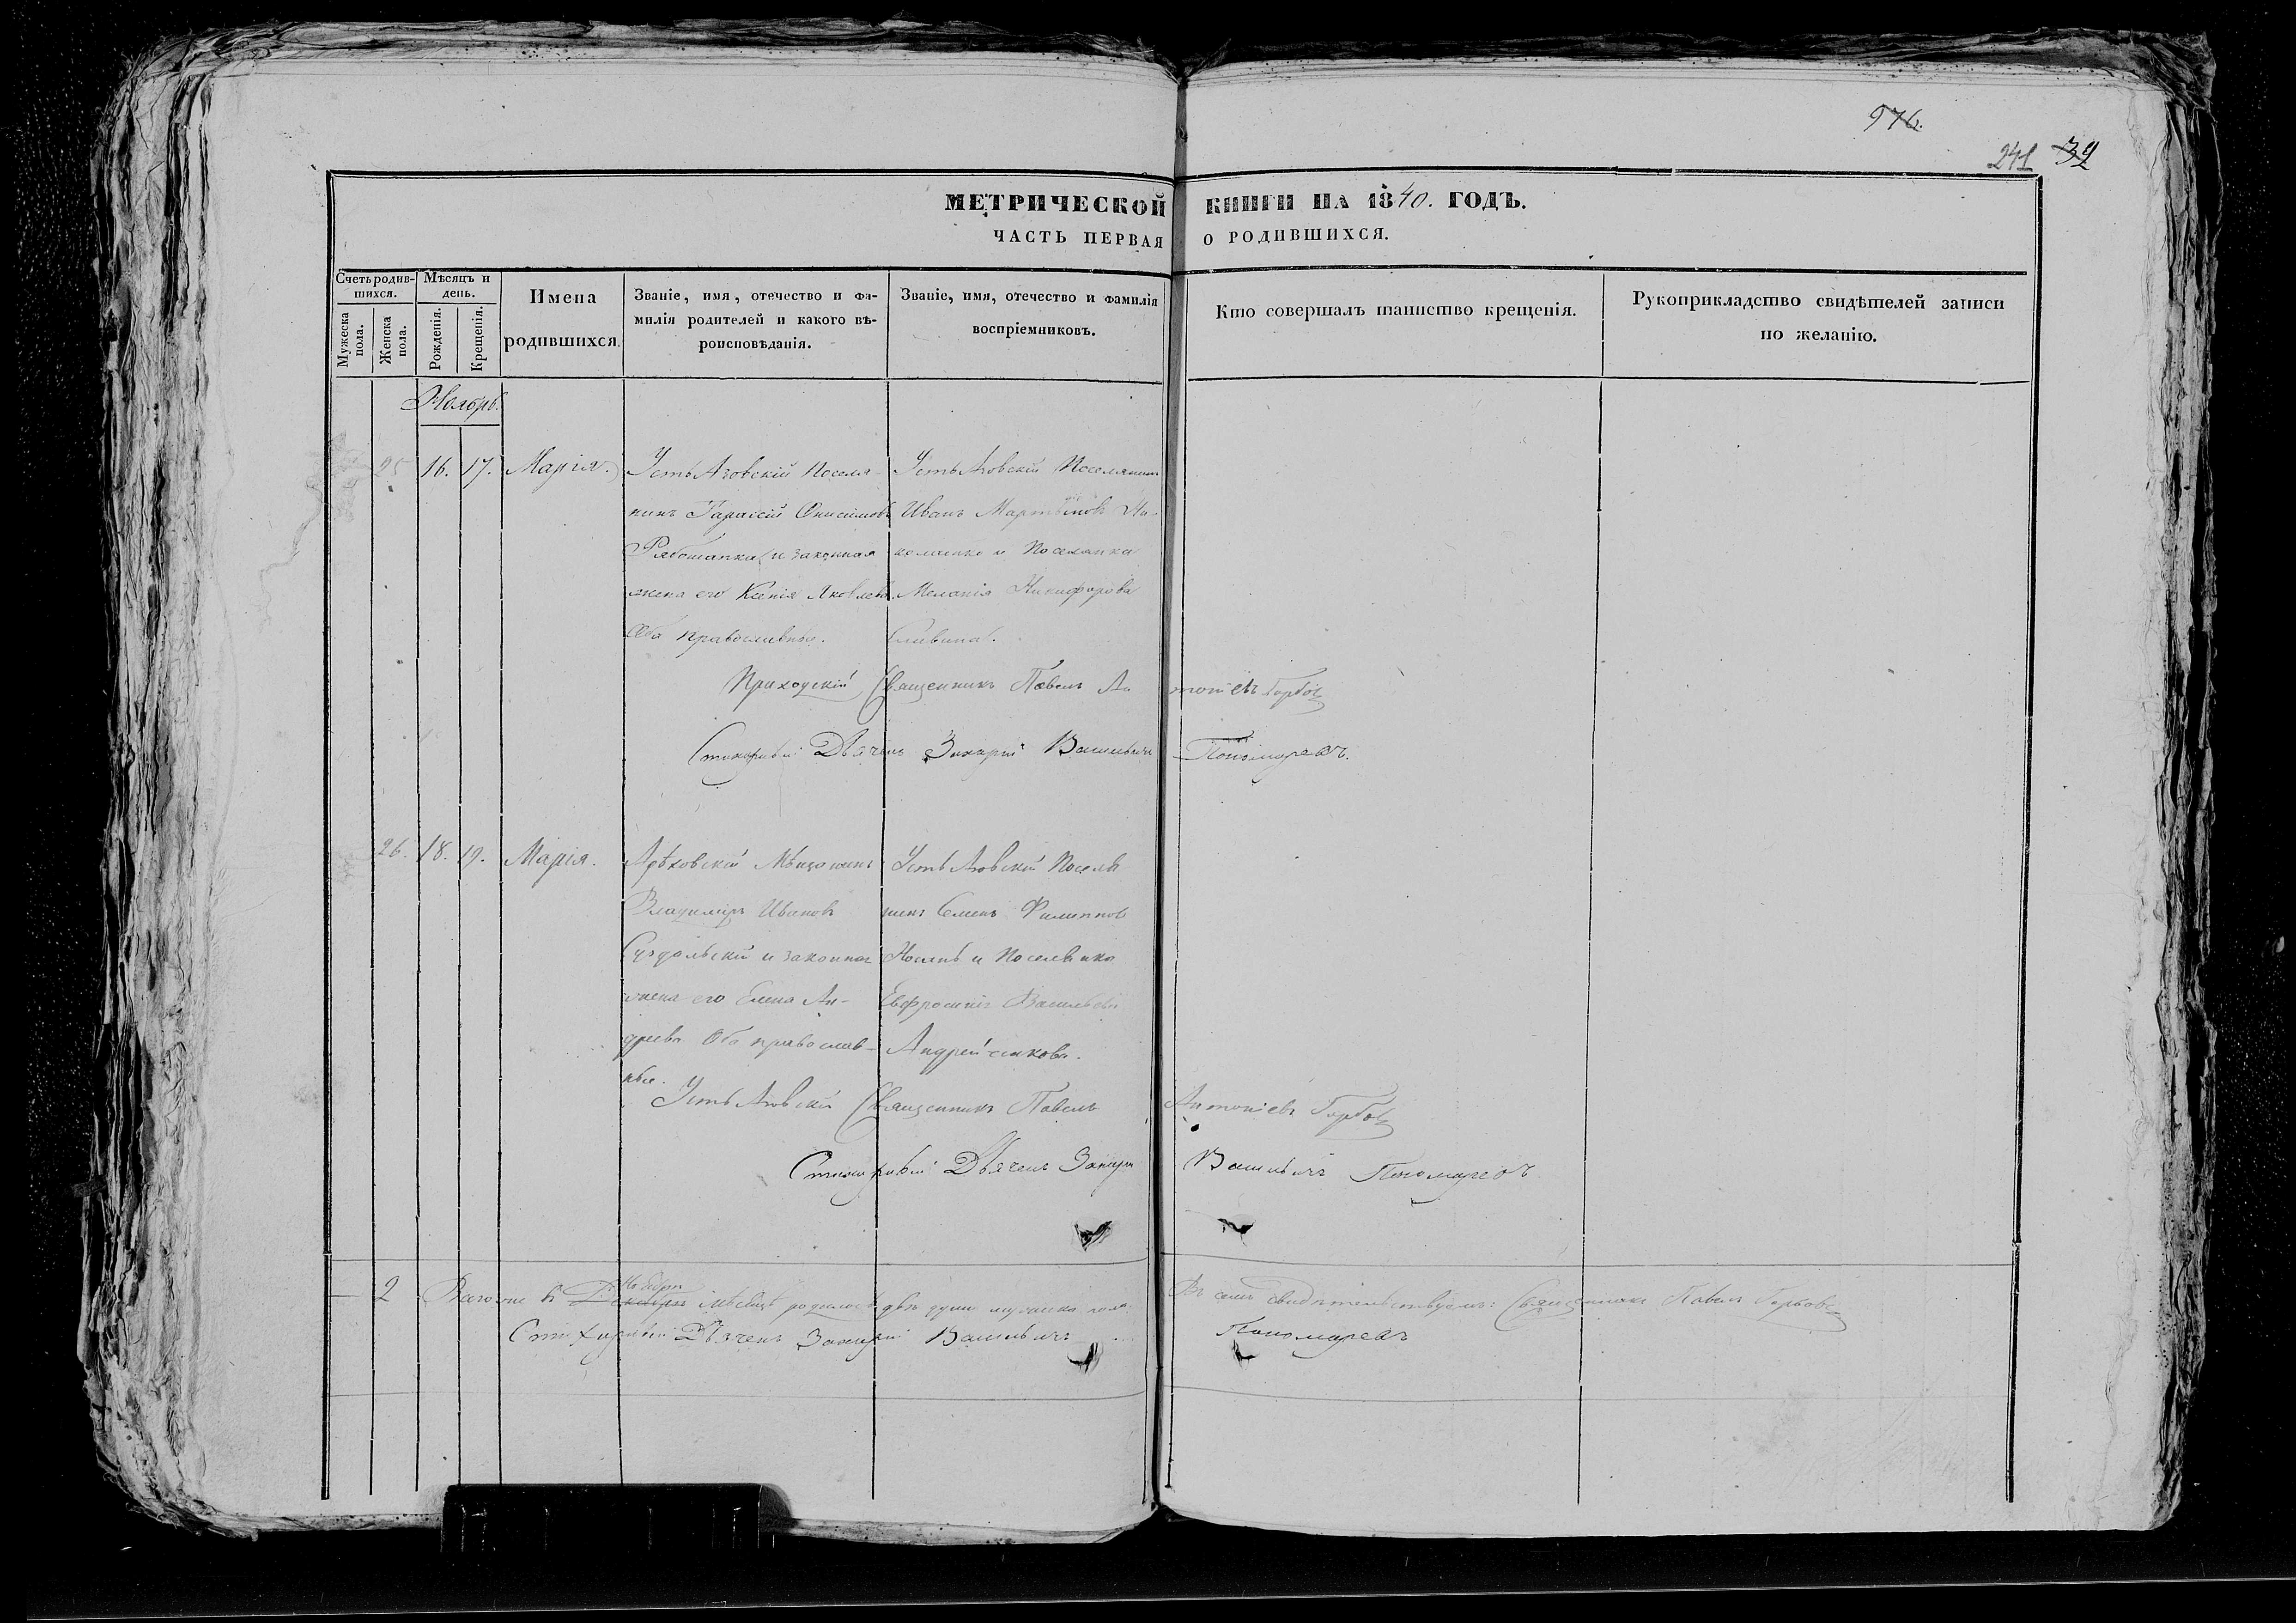 976.
241 39
МЕТРИЧЕСКОЙ КНИГИ НА 1840. ГОДЪ.
ЧАСТЬ ПЕРВАЯ О РОДИВШИХСЯ.
Счетъ родившихся.
Мужеска пола.
Женска пола.
Мѣсяцъ и день.
Рожденія.
Крещенія.
Имена родившихся.
Званіе, имя, отечество и фамилія родителей и какого вѣроисповѣданія.
Званіе, имя, отечество и фамилія воспріемниковъ.
Кто совершалъ таинство крещенія.
Рукоприкладство свидѣтелей записи по желанію.
Ноябрь.
25 16. 17. Марія.
Усть Азовскій Поселя-
нинъ Онисимовъ
Рябошапка и законная
жена его Ксенія Яковлева
Оба православные.
Усть Азовскій Поселянинъ
Иванъ Мартыновъ
и Поселянка
Меланія Никифорова
Приходскій Священникъ Павелъ Антоніевъ Горбов
Стихарный Дьячекъ Захарій Васильевичъ Пономаревъ.
26. 18. 19. Марія.
Орѣховскій Мѣщанинъ
Владиміръ Ивановъ
Суздальскій и законная
жена его Елена Ан-
дреева Оба православ-
ные.
Усть Азовскій Поселя
нинъ Семенъ Филиппов
и Поселянка
Евфросинія Васильева
Андрейченкова.
Усть Азовскій Священникъ Павелъ Антоніевъ Горбов
Стихарный Дьячекъ Захарій Васильичъ Пономаревъ
— 2 Всего въ Декабрѣ Ноябрѣ мѣсяцѣ родилось двѣ души пола.
Въ семъ свидѣтельствуемъ: Священникъ Павелъ Горбовъ
Стихарный Дьячекъ Захарій Васильичъ Пономаревъ